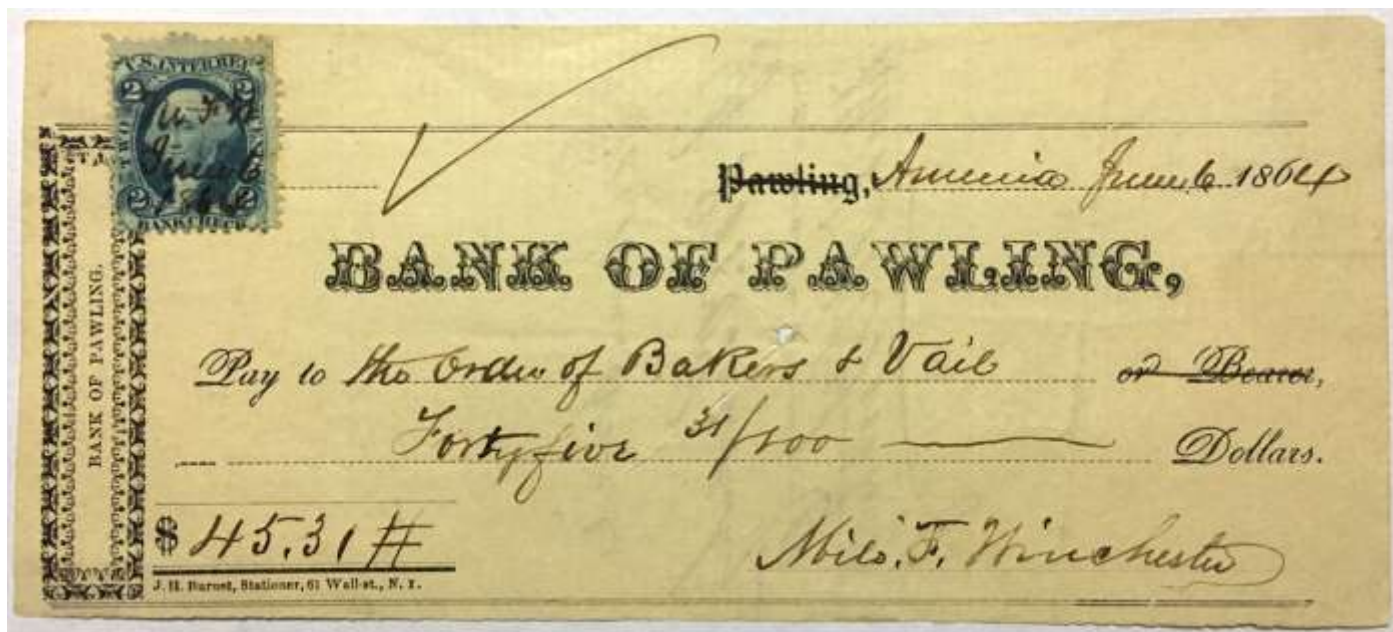 U.S. INTER. REV.
2 2
M F W
June 6
1864
2 2
BANK CHECK
Pawling, Amenia June 6 1864
BANK OF PAWLING,
BANK OF PAWLING.
Pay to the order of Bakers & Vail or Bearer,
Fortyfive 31/100 Dollars.
$ 45.31
Milo. F. Winchester
J. H. Burnet, Stationer, 61 Wall-st., N. Y.